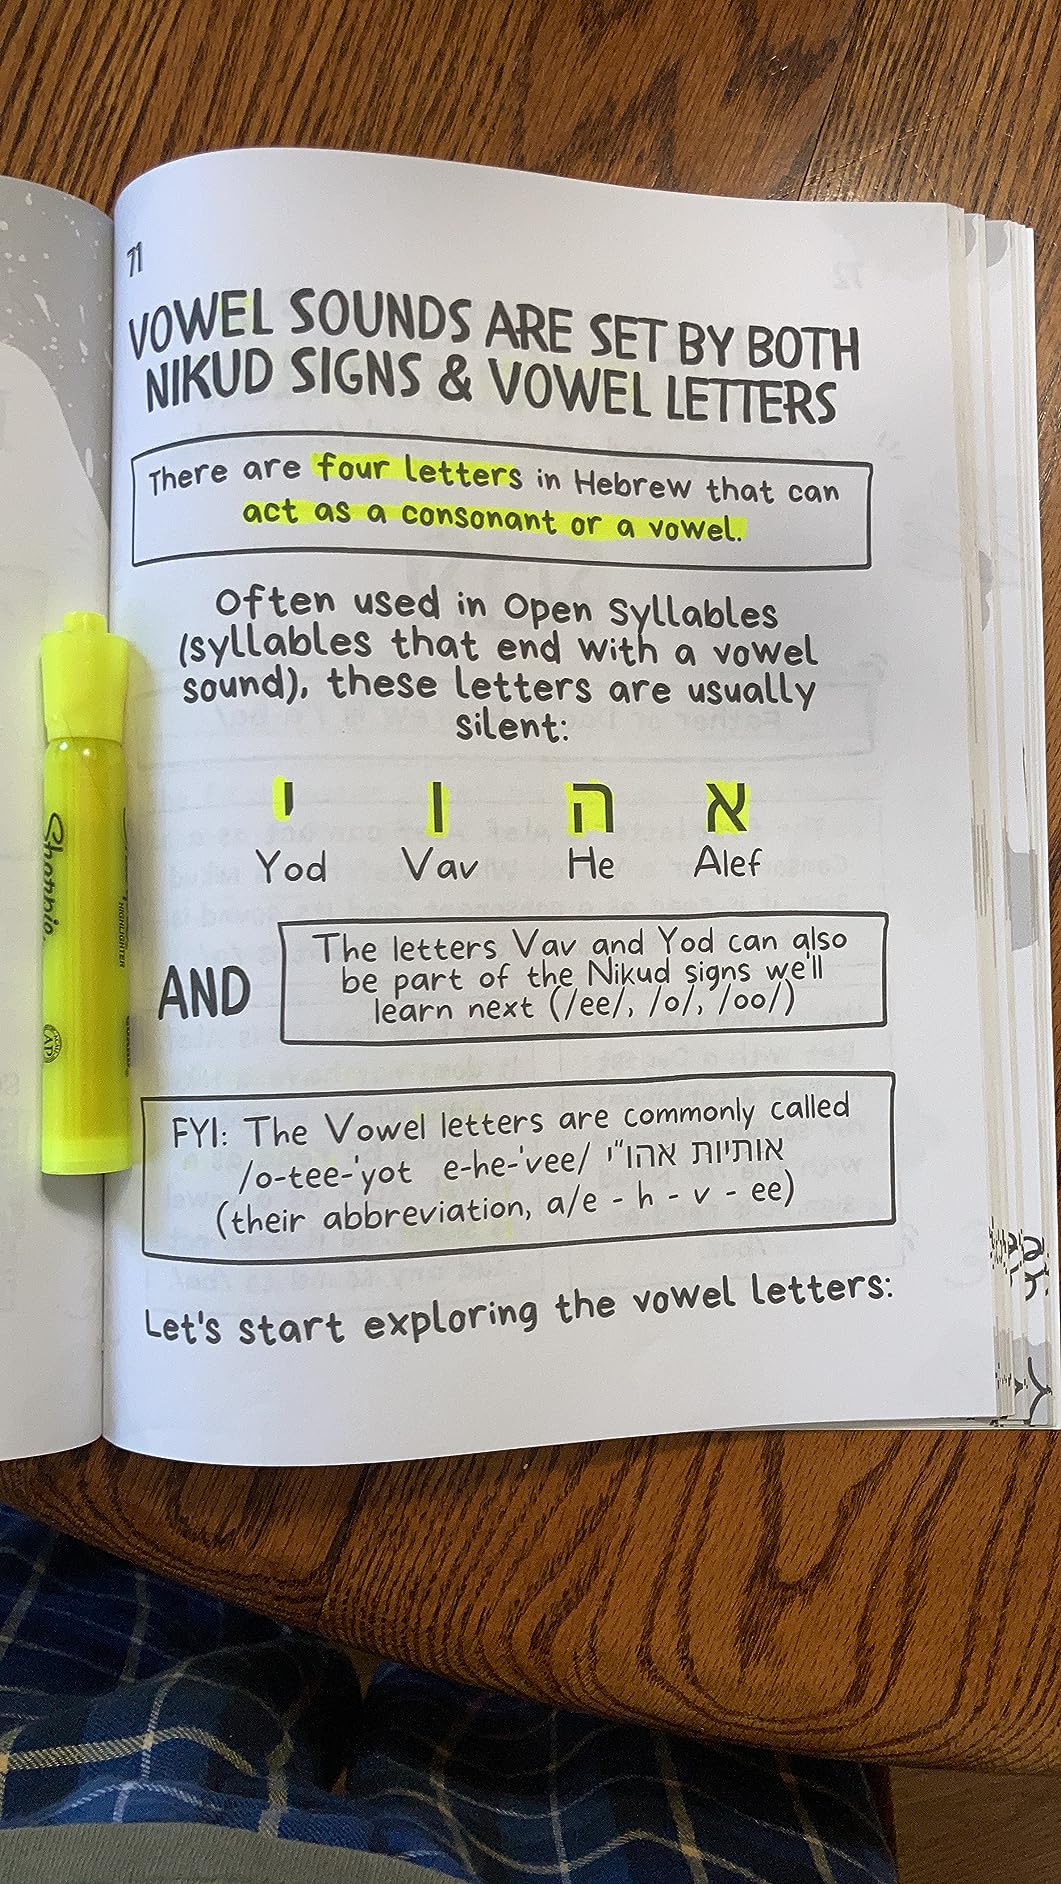 71
VOWEL SOUNDS ARE SET BY BOTH
NIKUD SIGNS & VOWEL LETTERS
There are four letters in Hebrew that can
act as a consonant or a vowel.
Often used in Open Syllables
(syllables that end with a vowel
sound), these letters are usually
silent:
א ה ו י
Yod Vav He Alef
AND
The letters Vav and Yod can also
be part of the Nikud signs we'll
learn next (/ee/, /o/, /oo/)
FYI: The Vowel letters are commonly called
/o-tee-'yot e-he-'vee/ אותיות אהו"י
(their abbreviation, a/e - h - v - ee)
Let's start exploring the vowel letters:
Sharpie
HIGHLIGHTER
AP
72